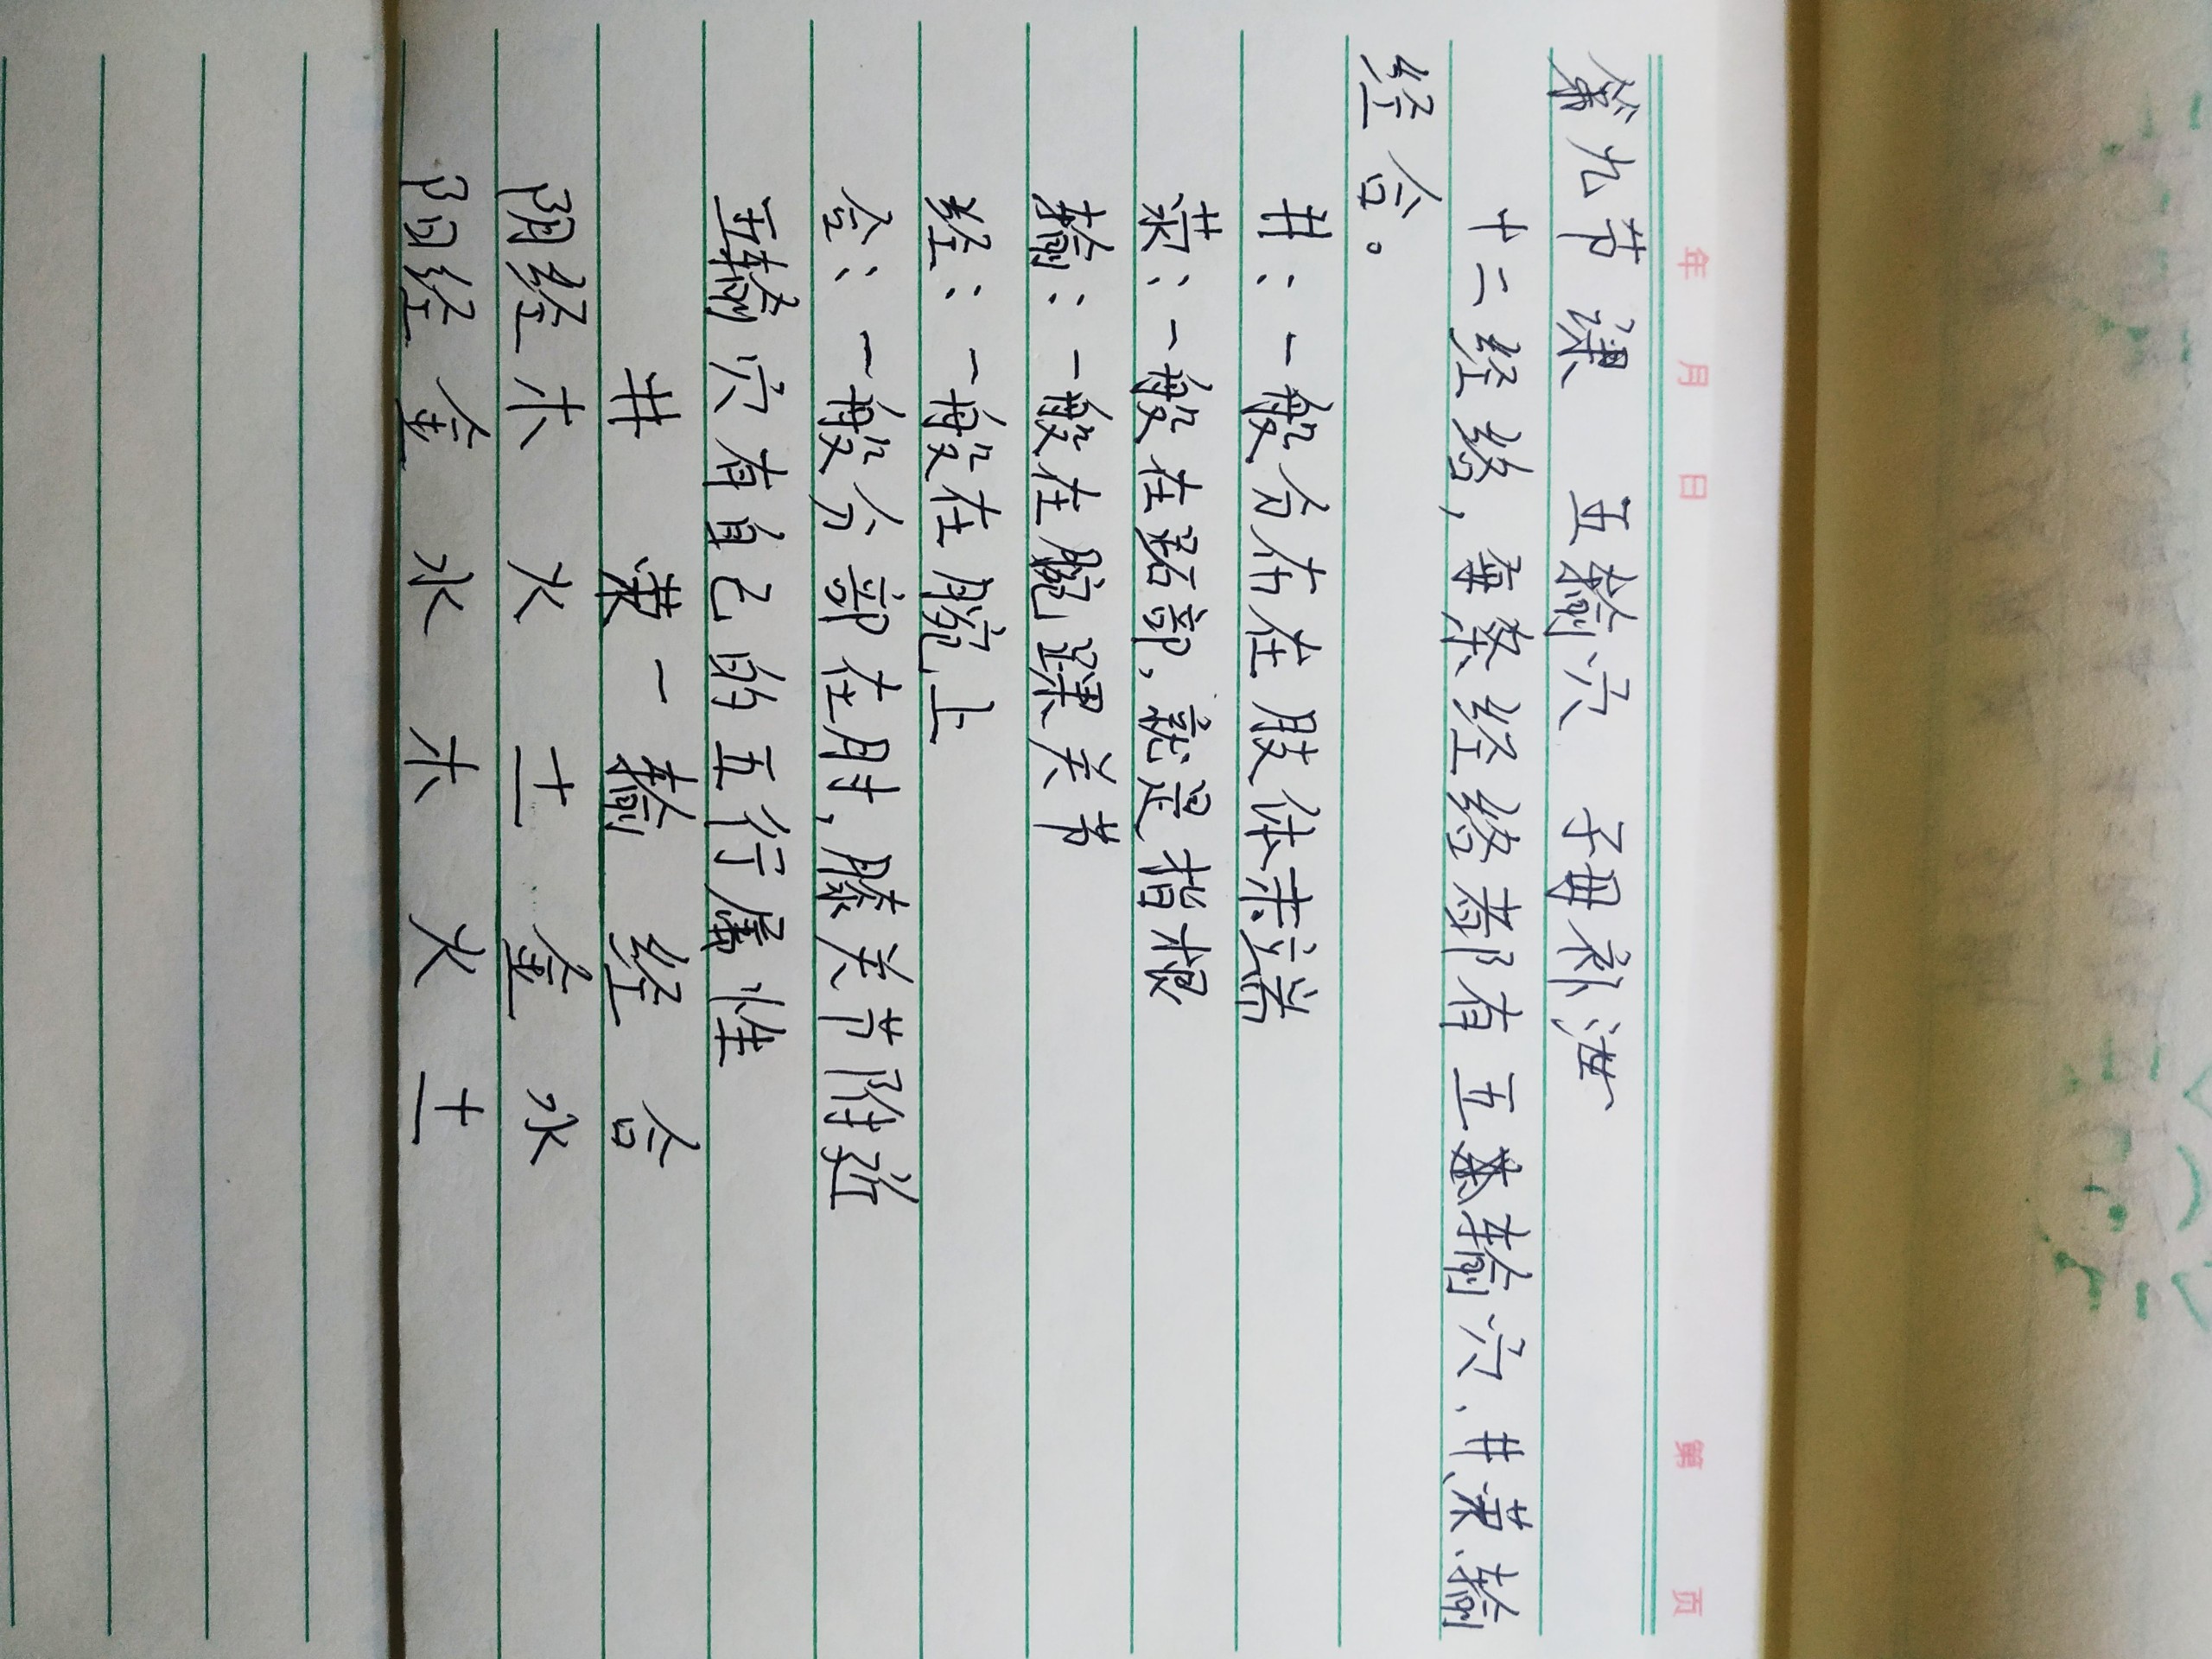 年 月 日 第 页
第九节课 五输穴 子母补泄
十二经络，每条经络都有五输穴、井、荥、输
经合。
井：一般分布在肢体末端
荥：一般在跖部，就是指根
输：一般在腕踝关节
经：一般在腕上
合：一般分部在肘，膝关节附近
五输穴有自己的五行属性
井 荥 一 输 经 合
阴经 木 火 土 金 水
阳经 金 水 木 火 土